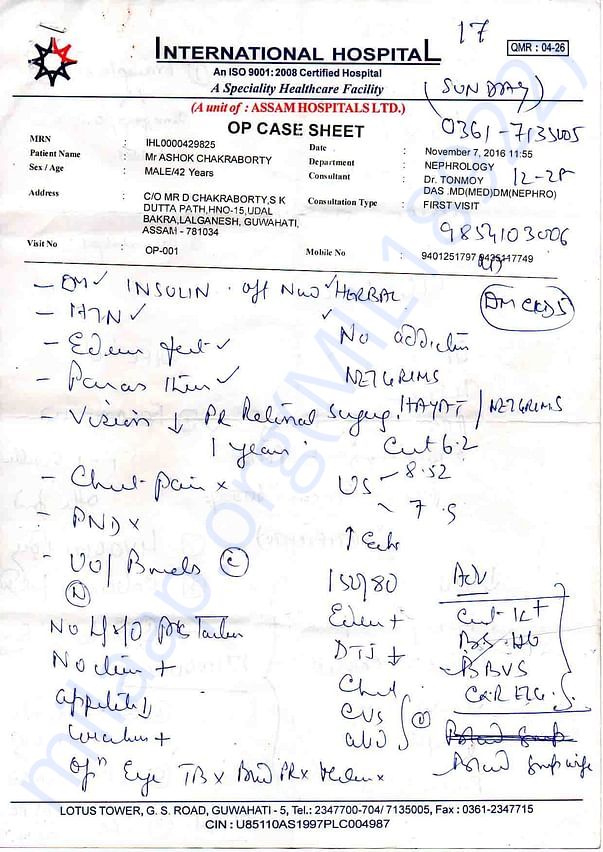 17
INTERNATIONAL HOSPITAL
QMR : 04-26
An ISO 9001: 2008 Certified Hospital
A Speciality Healthcare Facility
(SUNDAY)
(A unit of : ASSAM HOSPITALS LTD.)
OP CASE SHEET
0361-7135005
MRN : IHL0000429825
Date : November 7, 2016 11:55
Patient Name : Mr ASHOK CHAKRABORTY
Department : NEPHROLOGY
Sex / Age : MALE/42 Years
Consultant : Dr. TONMOY DAS .MD(MED)DM(NEPHRO)
12-2
Address : C/O MR D CHAKRABORTY,S K DUTTA PATH,HNO-15,UDAL BAKRA,LALGANESH, GUWAHATI, ASSAM - 781034
Consultation Type : FIRST VISIT
9854103006
Visit No : OP-001
Mobile No : 9401251797 9435117749
- DM ✓ INSULIN . off Now ✓ HERBAL
DM CKD5
- HTN ✓
- Edema feet ✓
No addiction
✓
NEIGRIMS
- Vision ↓ PR Retinal Surgery HAYAT / NEIGRIMS
1 years
Creat 6.2
- Chest pain x
US - 8.52
~ 7.5
- PND x
↑ Echo
- UO/ Bowels C
N
150/80
Adv
Edema +
No H/O
DTJ ↓
BBVS
Chest
Appetite ↓
CVS
CXR ECG
Abd
Blood Group
Blood Group wife
Eye TB x
LOTUS TOWER, G. S. ROAD, GUWAHATI - 5, Tel.: 2347700-704/ 7135005, Fax : 0361-2347715
CIN : U85110AS1997PLC004987
milaap.org(MIL183227